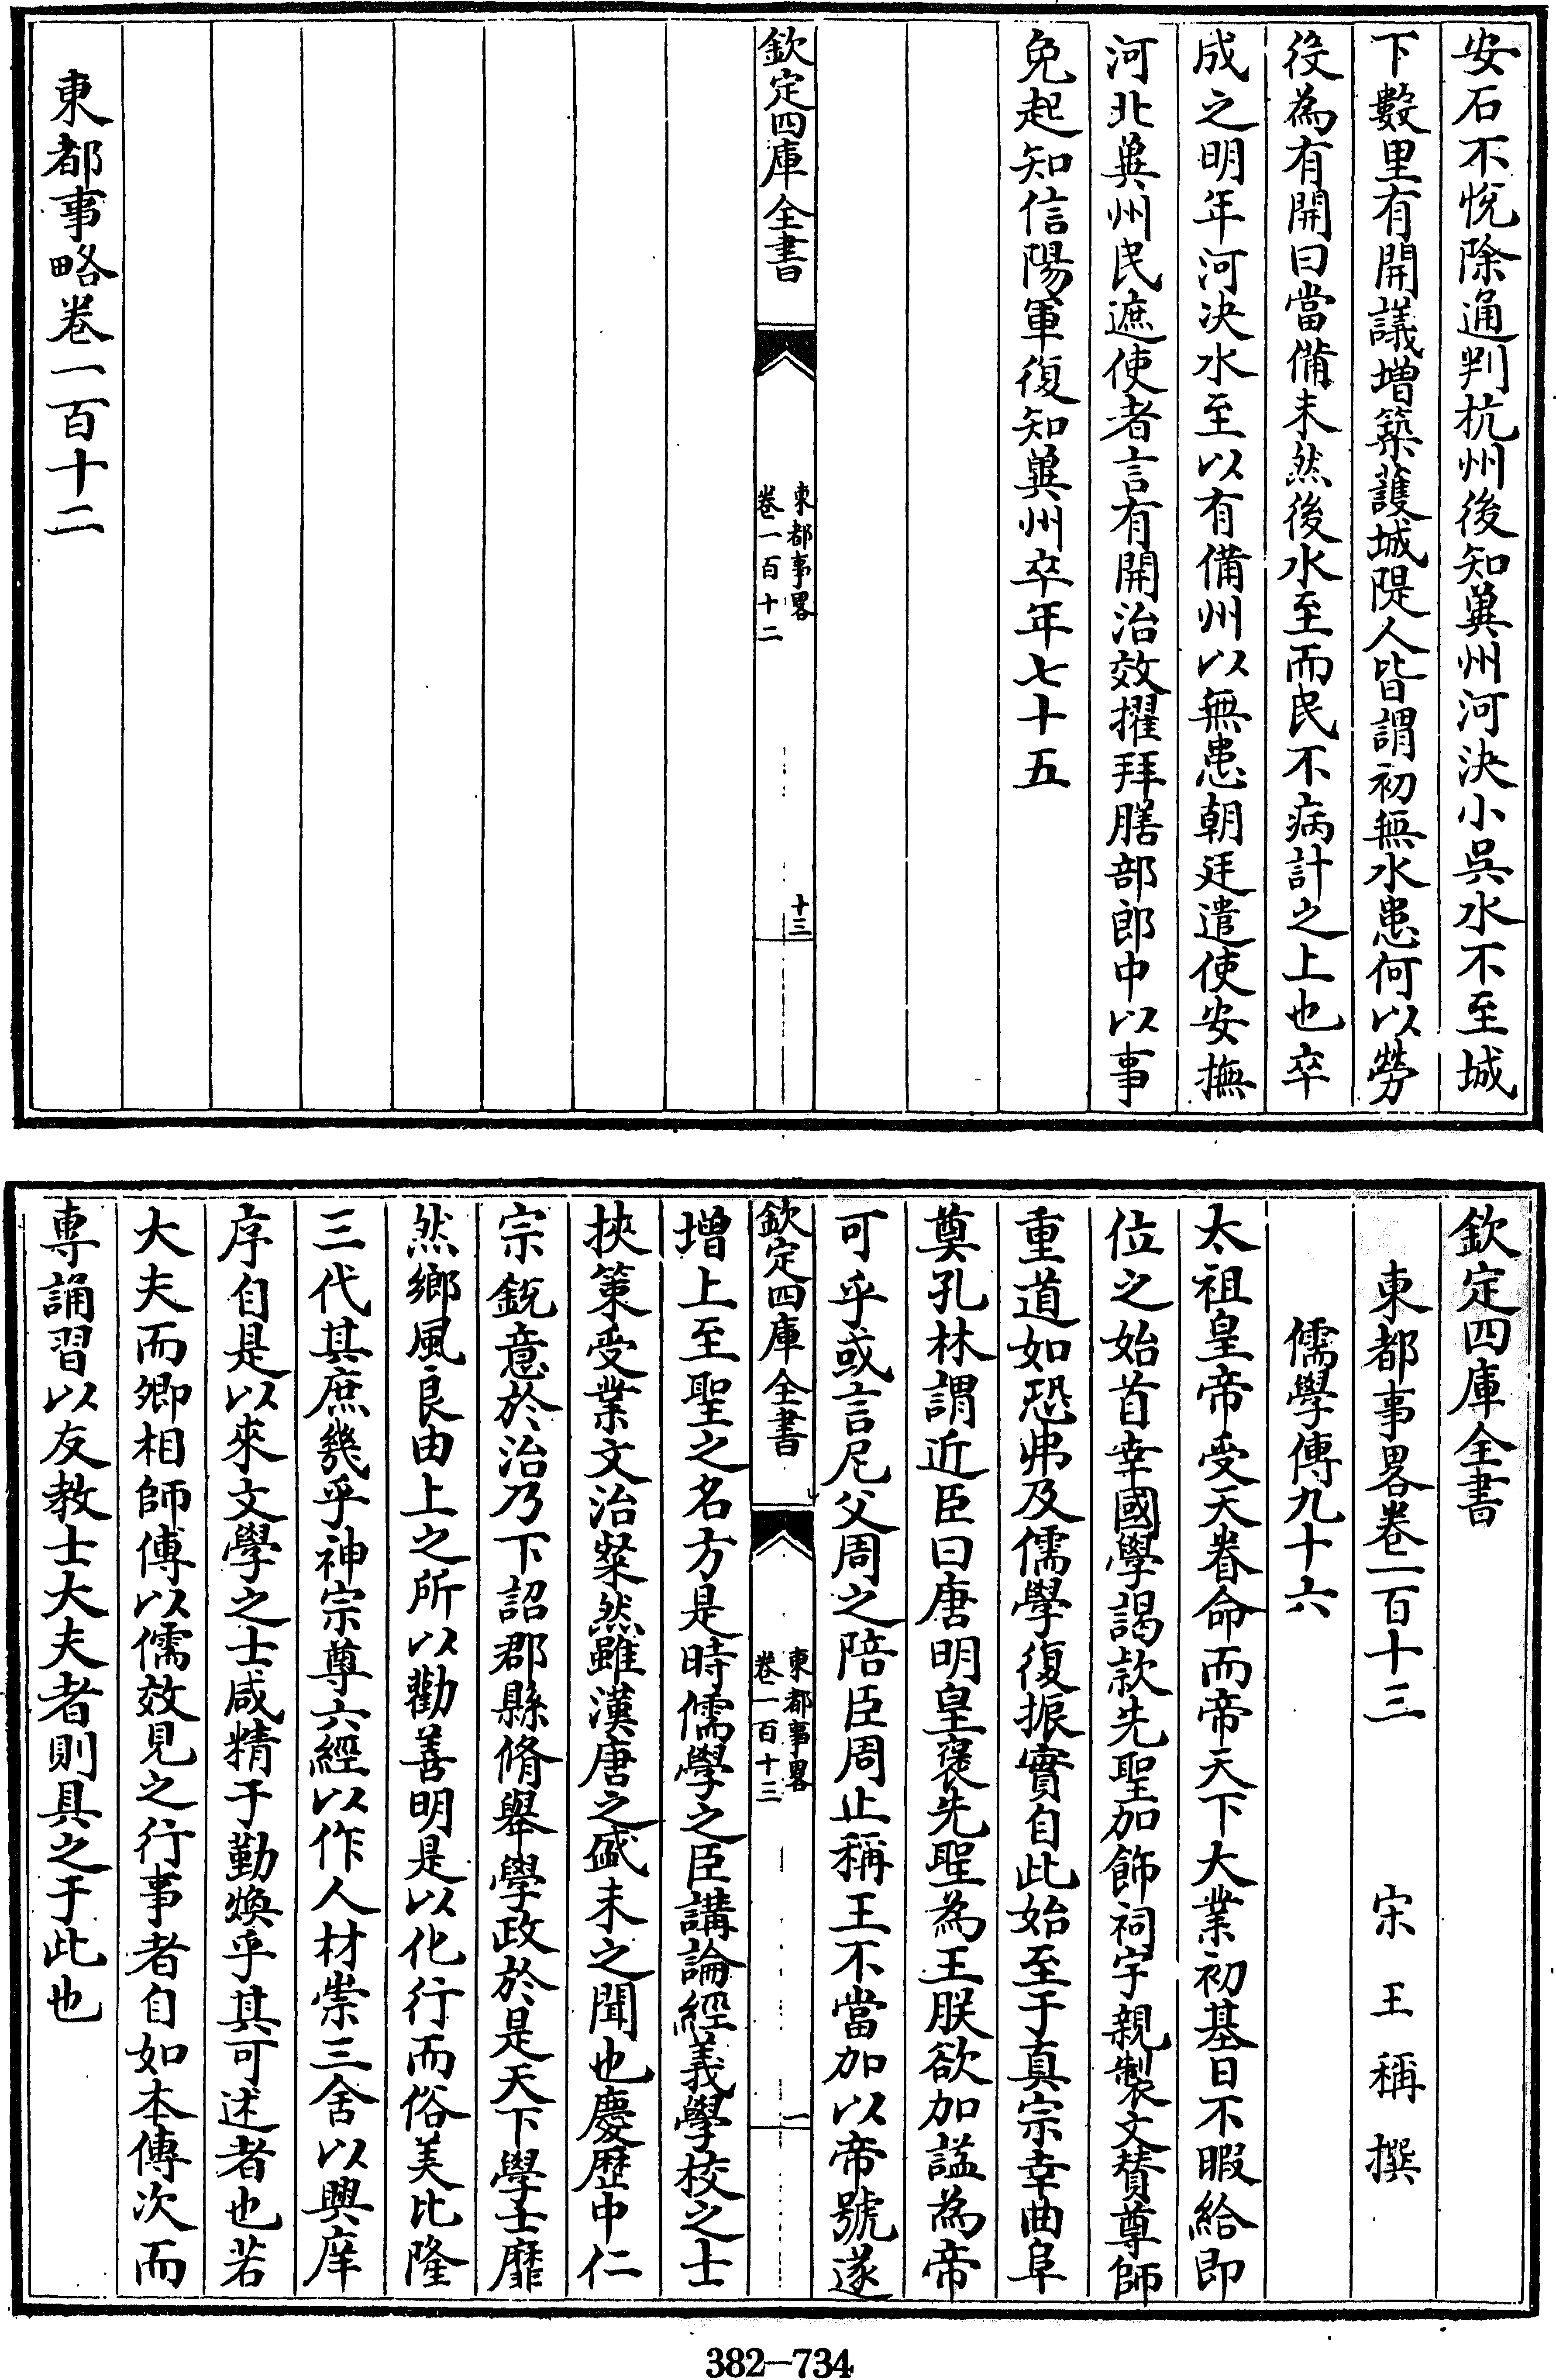 安石不悅除通判杭州後知冀州河決小吳水不至城
下數里有開議增築護城隄人皆謂初無水患何以勞
役為有開曰當備未然後水至而民不病計之上也卒
成之明年河決水至以有備州以無患朝廷遣使安撫
河北冀州民遮使者言有開治效擢拜膳部郎中以事
免起知信陽軍復知冀州卒年七十五
欽定四庫全書
東都事畧
卷一百十二
十三
東都事略卷一百十二
欽定四庫全書
東都事畧卷一百十三
宋王稱撰
儒學傳九十六
太祖皇帝受天眷命而帝天下大業初基日不暇給即
位之始首幸國學謁款先聖加飾祠宇親製文贊尊師
重道如恐弗及儒學復振實自此始至于真宗幸曲阜
奠孔林謂近臣曰唐明皇褒先聖為王朕欲加謚為帝
可乎或言尼父周之陪臣周止稱王不當加以帝號遂
欽定四庫全書
東都事畧
卷一百十三
一
增上至聖之名方是時儒學之臣講論經義學校之士
挾策受業文治粲然雖漢唐之盛未之聞也慶歷中仁
宗銳意於治乃下詔郡縣脩舉學政於是天下學士靡
然鄉風良由上之所以勸善明是以化行而俗美比隆
三代其庶幾乎神宗尊六經以作人材崇三舍以興庠
序自是以來文學之士咸精于勤煥乎其可述者也若
大夫而卿相師傅以儒效見之行事者自如本傳次而
專誦習以友教士大夫者則具之于此也
382–734